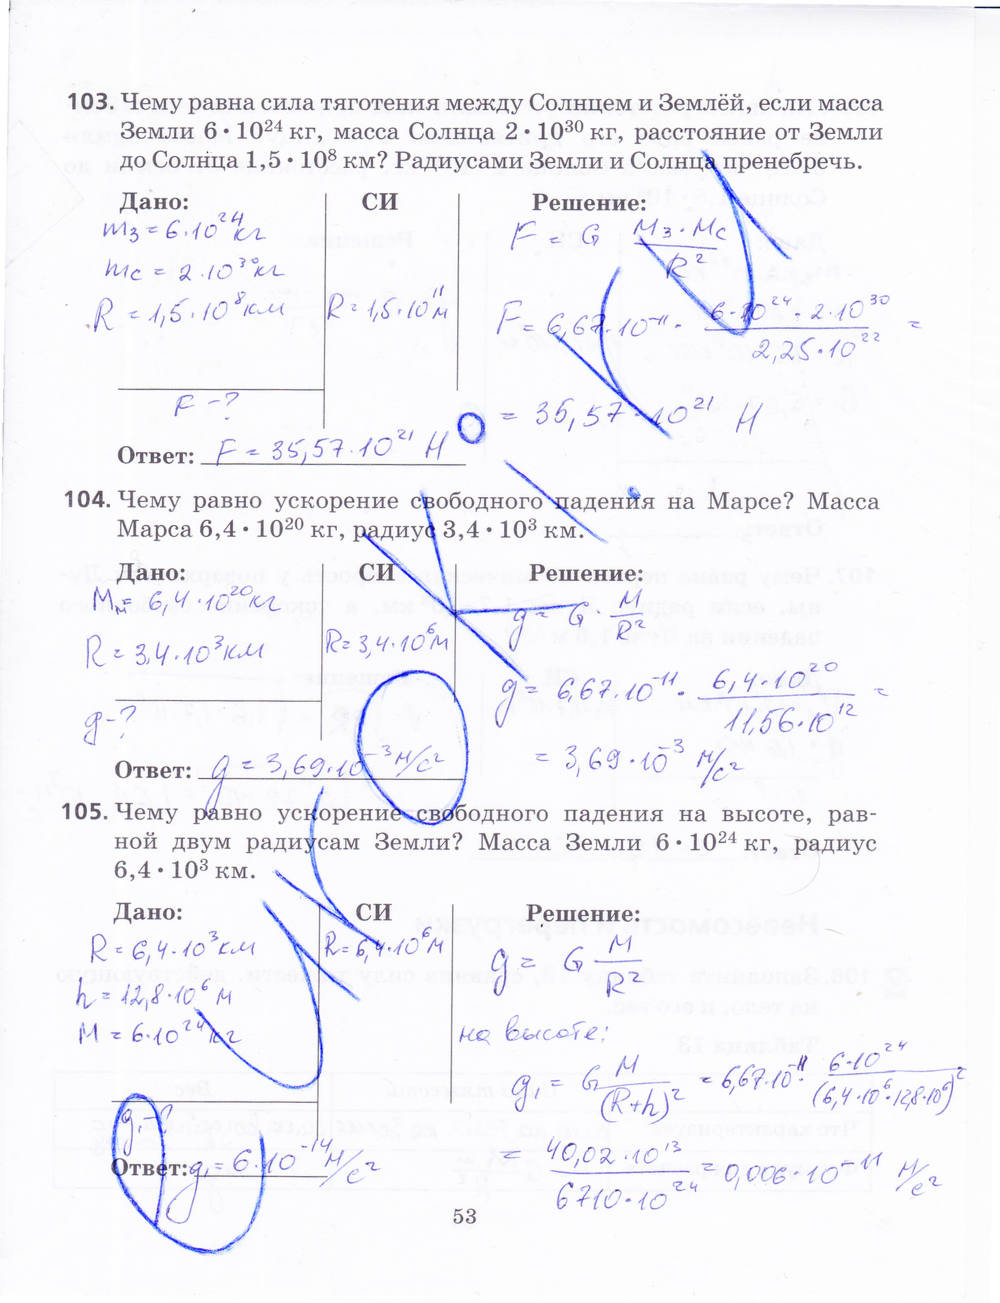 103. Чему равна сила тяготения между Солнцем и Землёй, если масса
Земли 6 • 10²⁴ кг, масса Солнца 2 • 10³⁰ кг, расстояние от Земли
до Солнца 1,5 • 10⁸ км? Радиусами Земли и Солнца пренебречь.
Дано: СИ Решение:
mз = 6·10²⁴ кг
mс = 2·10³⁰ кг
R = 1,5·10⁸ км R = 1,5·10¹¹ м
F = G Mз·Mс / R²
F = 6,67·10⁻¹¹ · 6·10²⁴ · 2·10³⁰ / 2,25·10²² =
F - ?
= 35,57·10²¹ Н
Ответ: F = 35,57·10²¹ Н
104. Чему равно ускорение свободного падения на Марсе? Масса
Марса 6,4 • 10²⁰ кг, радиус 3,4 • 10³ км.
Дано: СИ Решение:
Mм = 6,4·10²⁰ кг
R = 3,4·10³ км R = 3,4·10⁶ м
g = G · M / R²
g = 6,67·10⁻¹¹ · 6,4·10²⁰ / 11,56·10¹² =
g - ?
= 3,69·10⁻³ м/с²
Ответ: g = 3,69·10⁻³ м/с²
105. Чему равно ускорение свободного падения на высоте, рав-
ной двум радиусам Земли? Масса Земли 6 • 10²⁴ кг, радиус
6,4 • 10³ км.
Дано: СИ Решение:
R = 6,4·10³ км R = 6,4·10⁶ м
h = 12,8·10⁶ м
M = 6·10²⁴ кг
g = G M / R²
на высоте:
g₁ = G M / (R+h)² = 6,67·10⁻¹¹ · 6·10²⁴ / (6,4·10⁶·12,8·10⁶)²
g₁ - ?
= 40,02·10¹³ / 6710·10²⁴ = 0,006·10⁻¹¹ м/с²
Ответ: g₁ = 6·10⁻¹⁴ м/с²
53